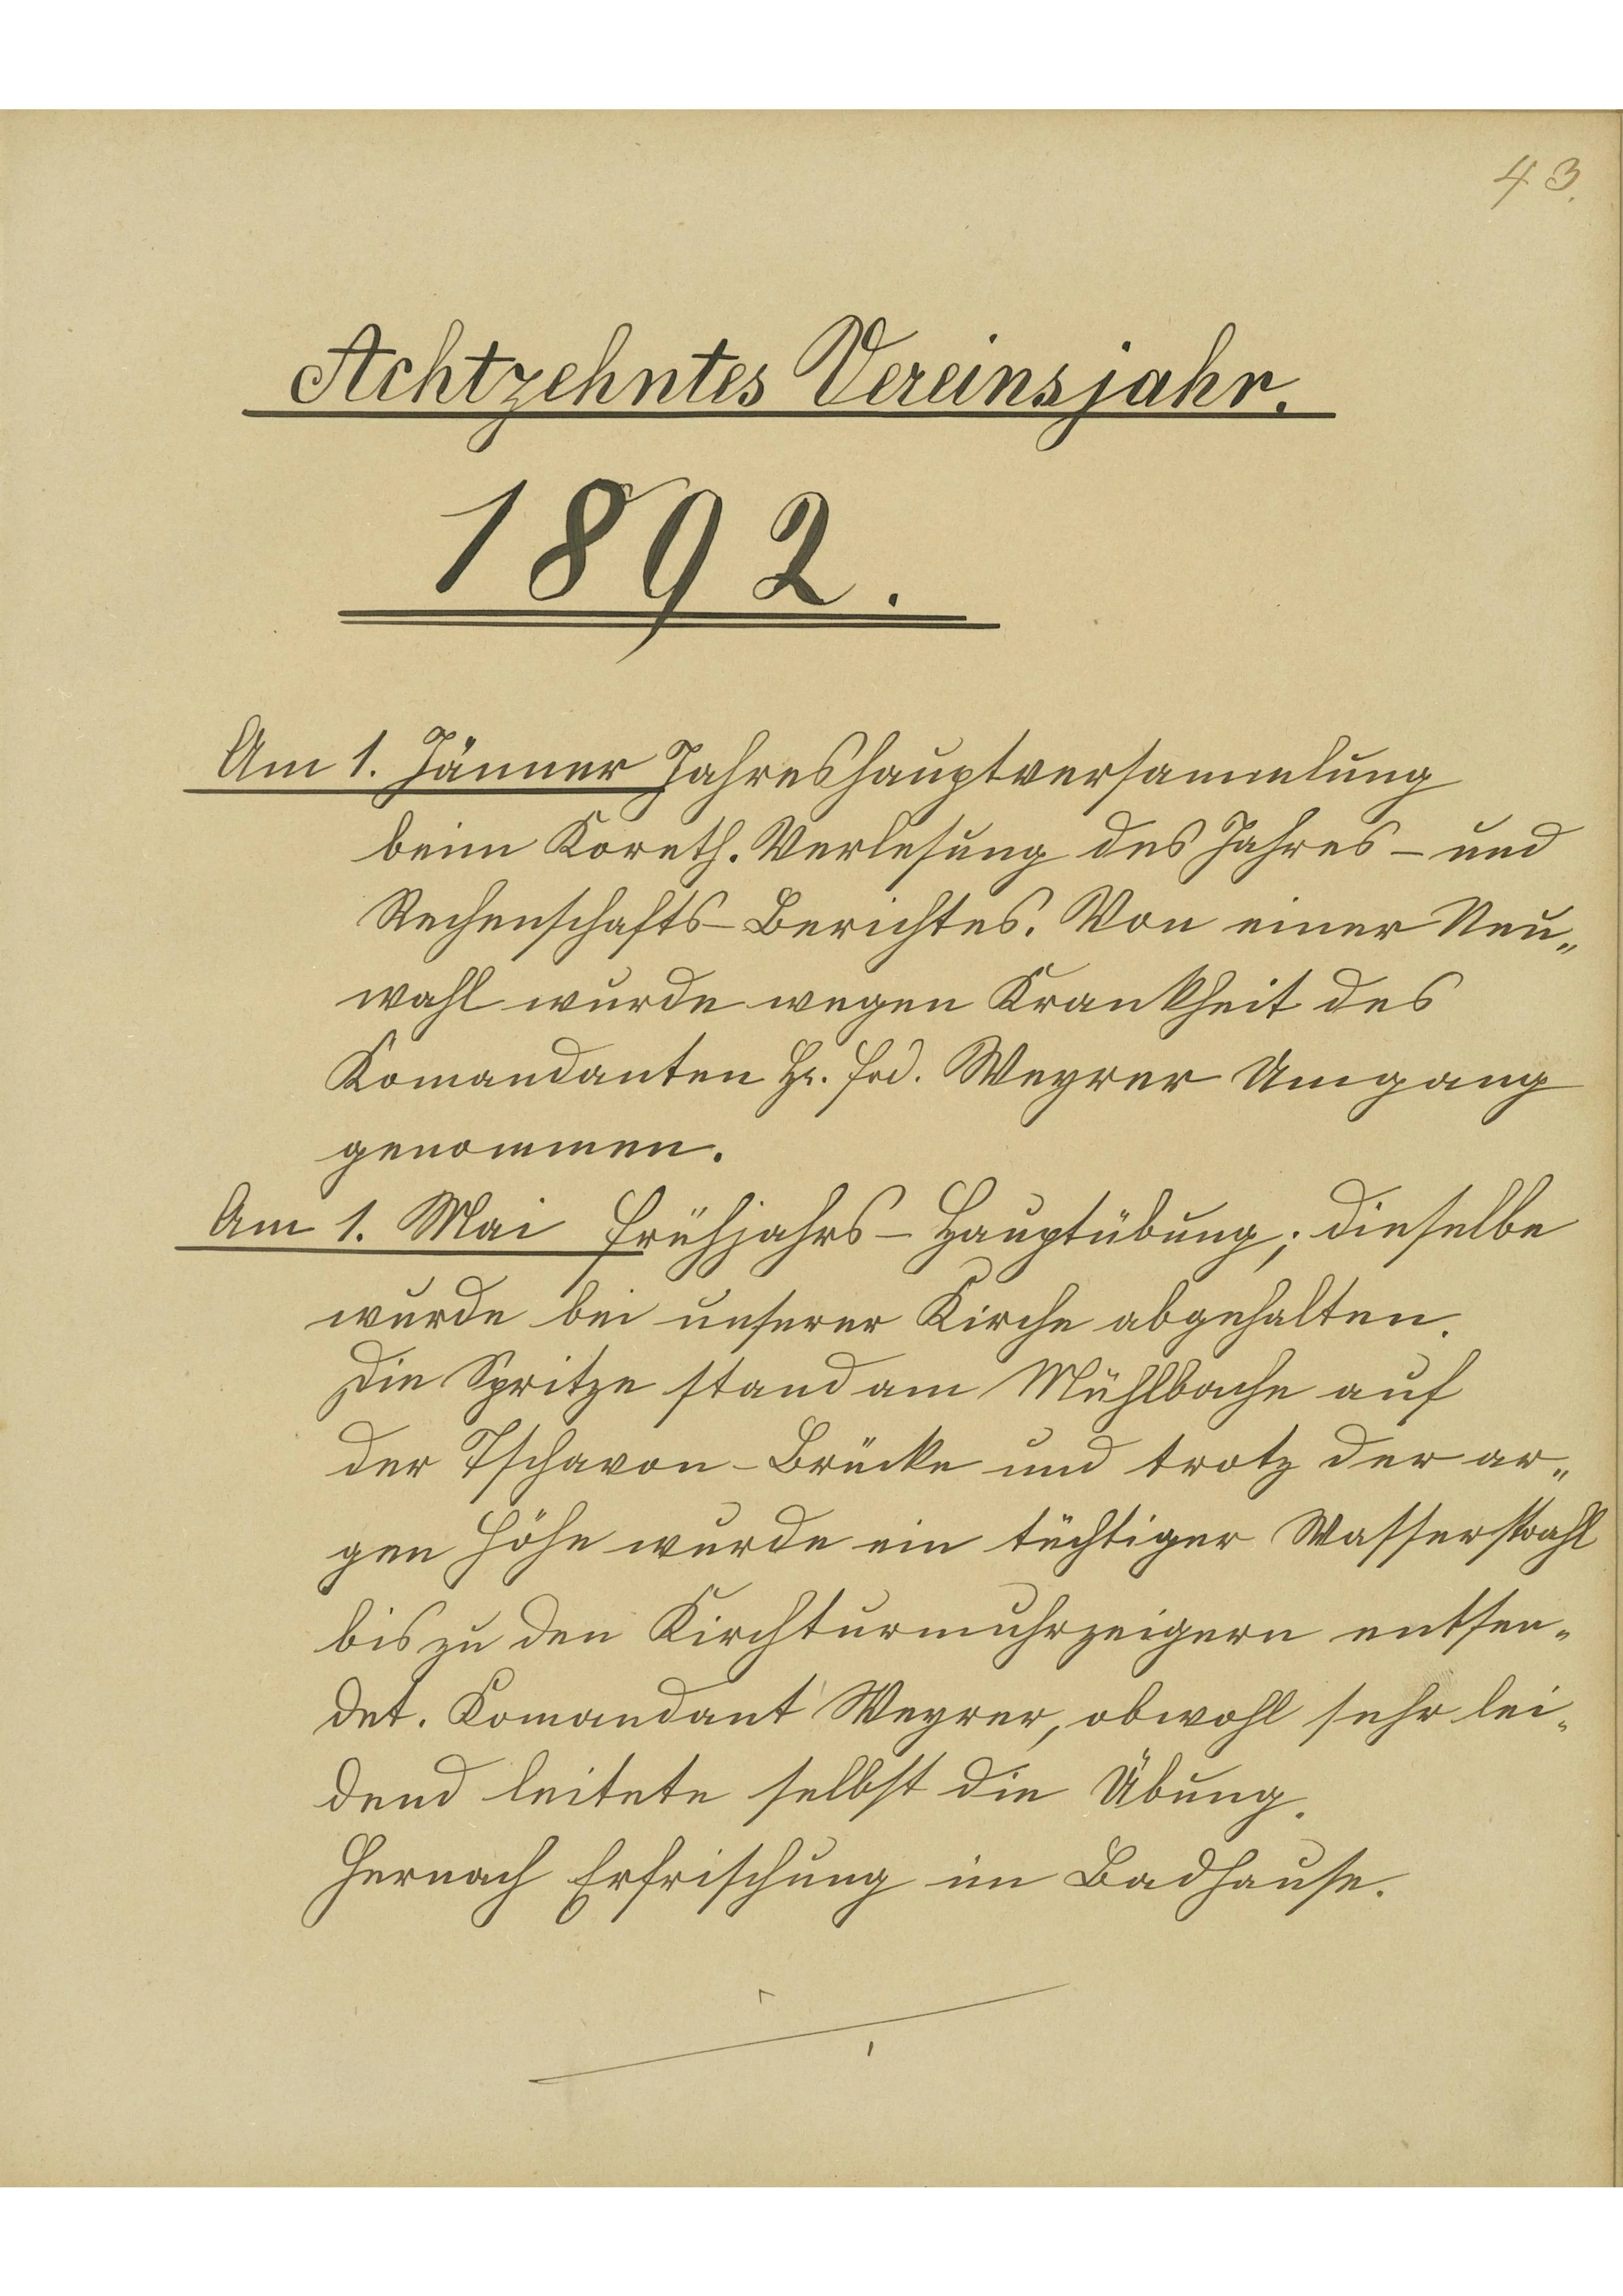 43.
Achtzehntes Vereinsjahr.
1892.
Am 1. Jänner Jahreshauptversammlung
beim Koreth. Verlesung des Jahres- und
Rechenschafts-Berichtes. Von einer Neu„
wahl wurde wegen Krankheit des
Komandanten Hr. Frd. Weyrer Umgang
genommen.
Am 1. Mai Frühjahrs-Hauptübung; dieselbe
wurde bei unserer Kirche abgehalten.
Die Spritze stand am Mühlbache auf
der Tschavon-Brücke und trotz der ar„
gen Höhe wurde ein tüchtiger Wasserstrahl
bis zu den Kirchturmuhrzeigern entsen„
det. Komandant Weyrer, obwohl sehr lei„
dend leitete selbst die Übung.
Hernach Erfrischung im Badhause.